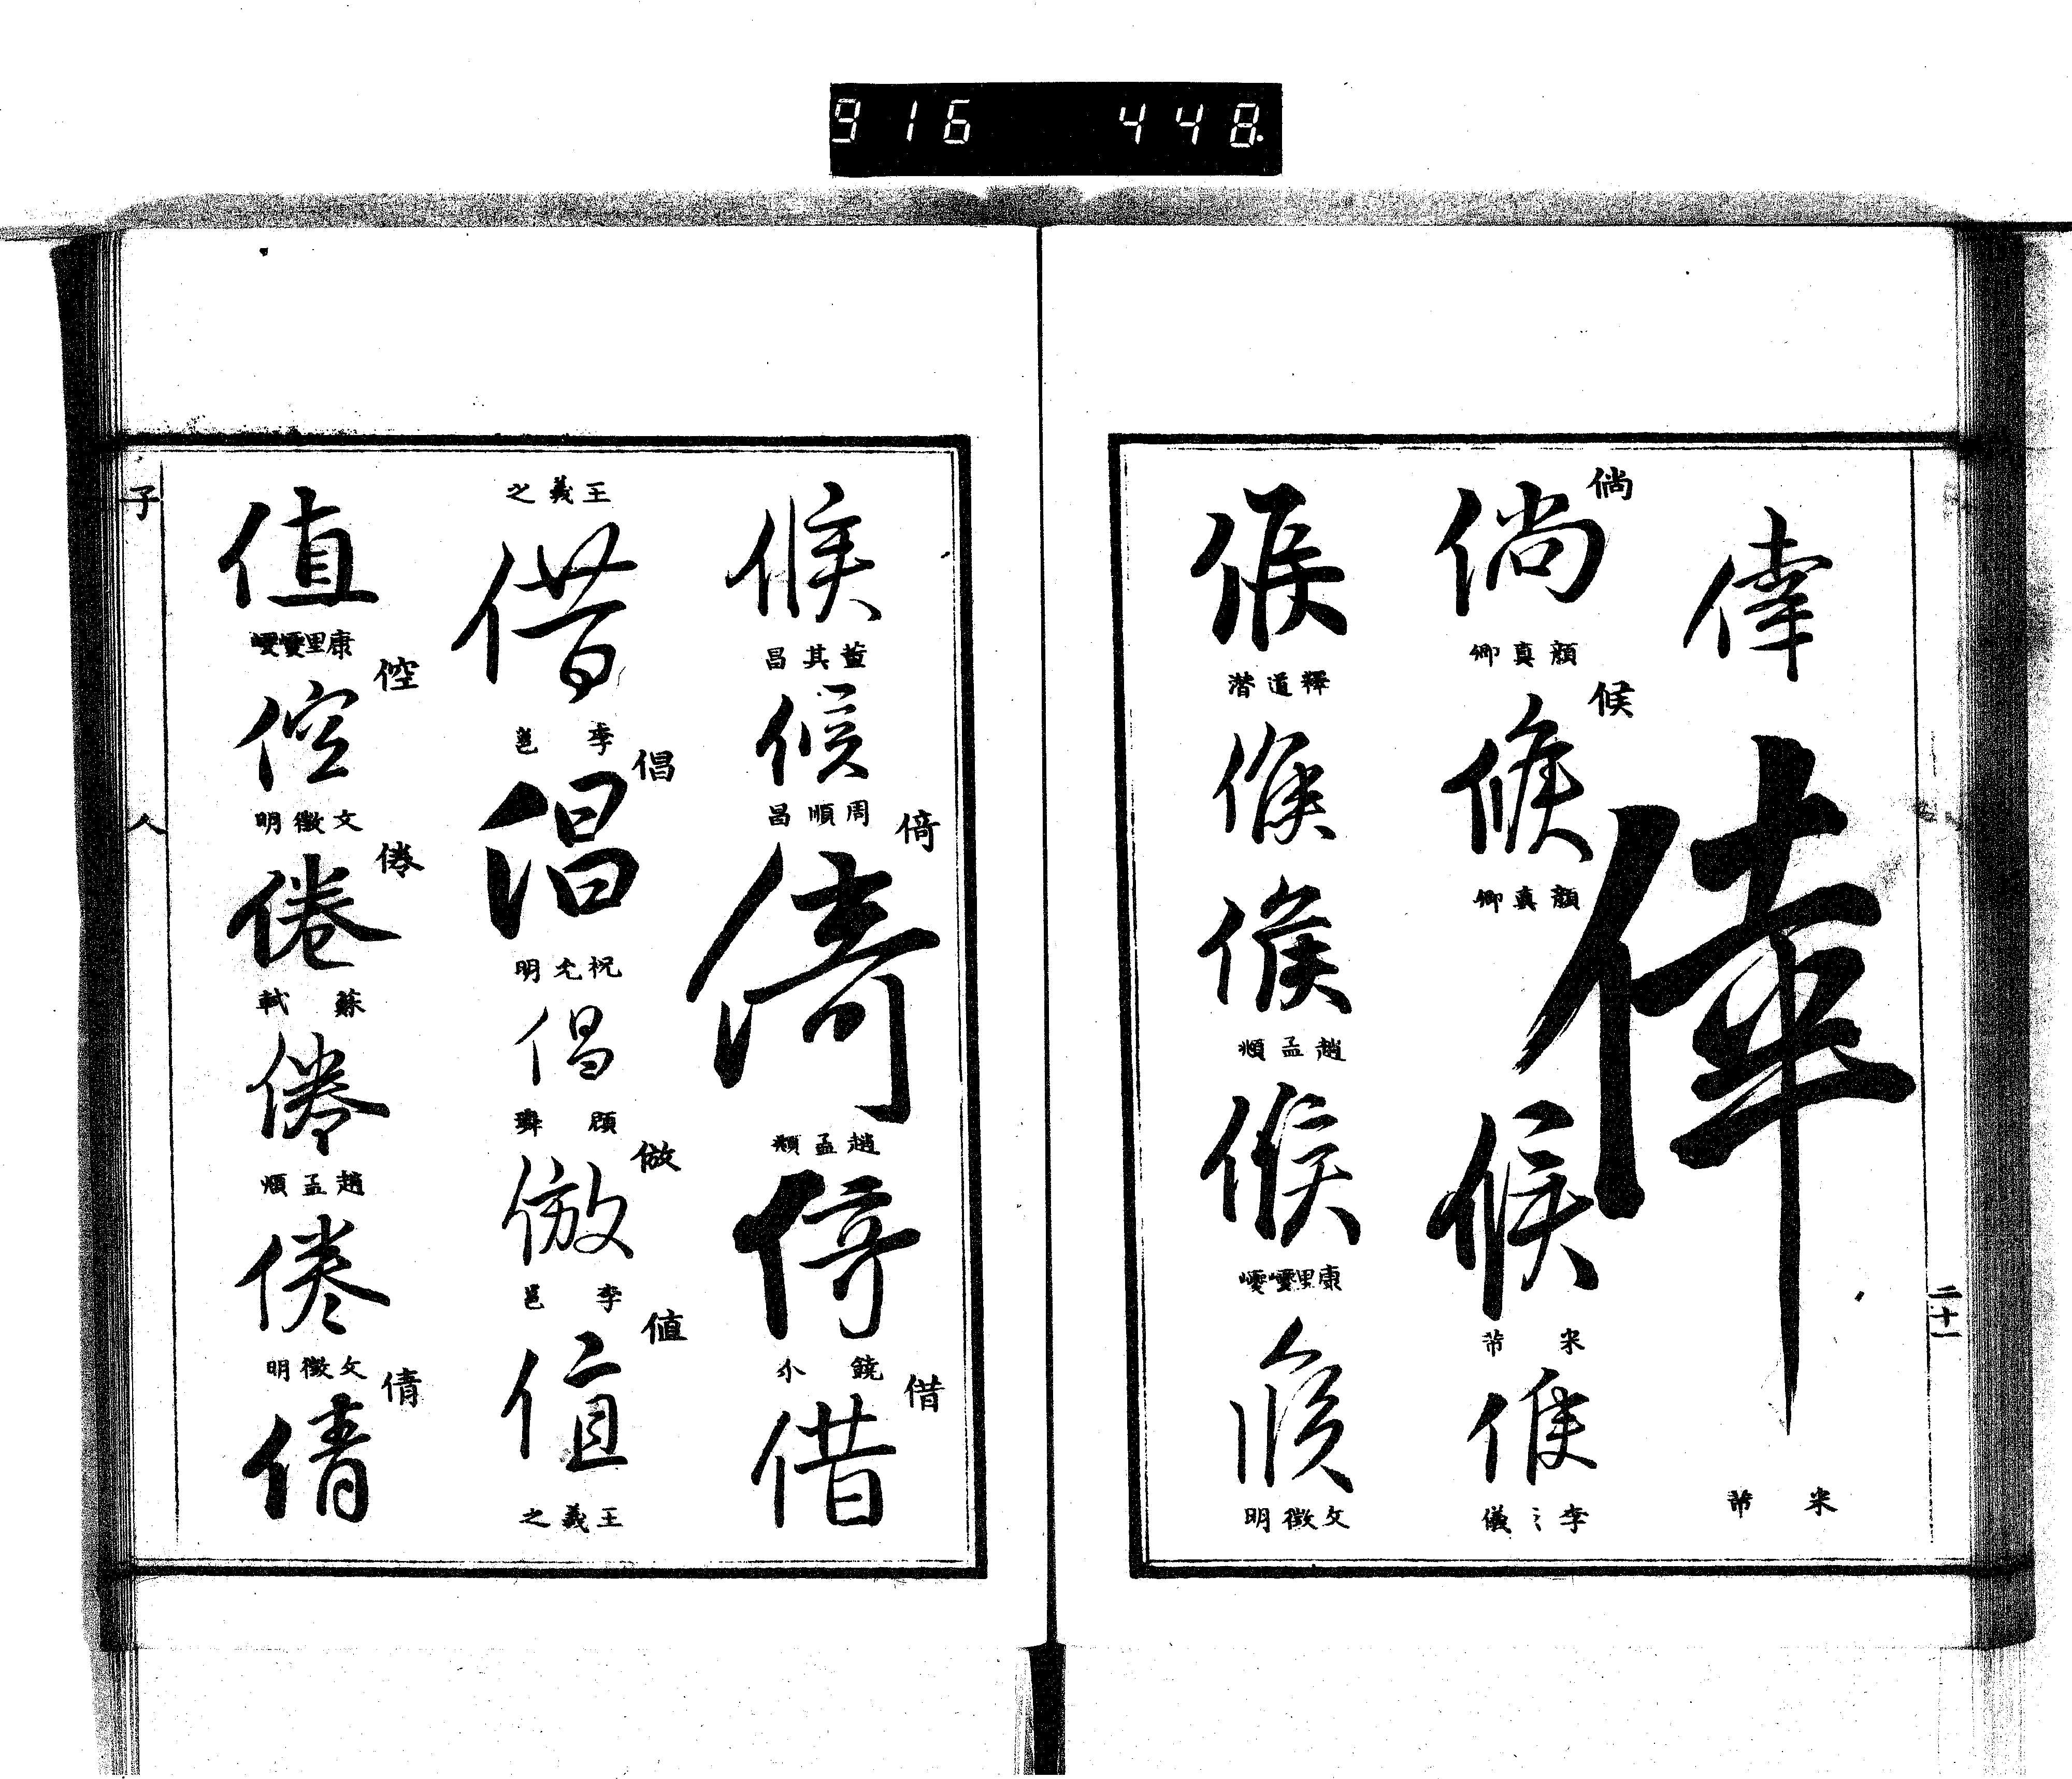 916 448
二十一
倖
倖
米芾
倘
倘
顏真卿
候
候
顏真卿
候
米芾
候
李〻儀
候
釋道潛
候
候
趙孟頫
候
康里巙巙
候
文徵明
候
董其昌
候
周順昌
倚
倚
趙孟頫
倚
饒介
借
借
王羲之
借
李邕
倡
倡
祝允明
倡
顧璘
倣
倣
李邕
値
值
王羲之
值
康里巙巙
倥
倥
文徵明
倦
倦
蘇軾
倦
趙孟頫
倦
文徵明
倩
倩
子
人